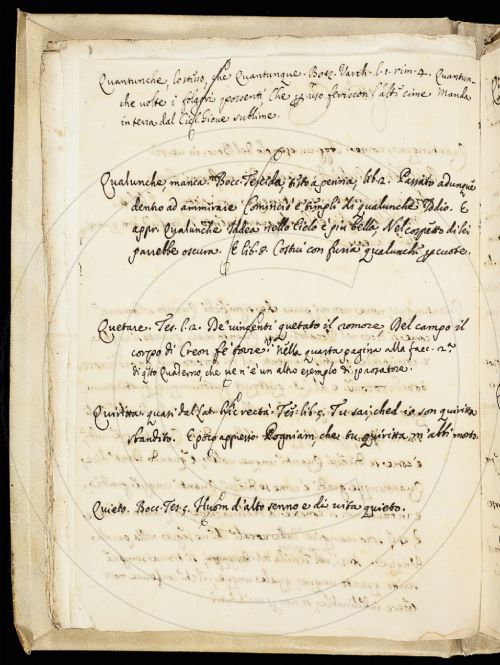 Quantunche, lo stesso, che Quantunque. Boez. Varch. l. 1. rim. 4. Quantun-
che volte i folgori possenti, Che p uso feriscon l'alte cime Manda
in terra dal Ciel Giove sublime.
Qualunche, manca. Bocc. Teseida, testo a penna, lib. 2. Passato adunque
dentro ad ammirare Cominciò i templi di qualunche Iddio. E
appr. Qualunche Iddea nello Cielo è più bella, Nel cospetto di lei
parrebbe oscura. E lib. 8. Costui con furia qualunche percuote.
Quetare. Tes. l. 2. De' vincenti quetato il romore, Del campo il
corpo di Creon fe' torre. nella quarta pagina alla facc. 2.a
di qsto Quaderno, che ve n' è un altro esempio di
Quiritta. quasi dal Lat. hîc recta. Tes. lib. 5. Tu sai, ched io son quiritta
sbandito. E poco appresso Pogniam, che tu quiritta m' abbi morto.
Quieto. Bocc. Tes. 5. Huom d' alto senno e di vita quieto.